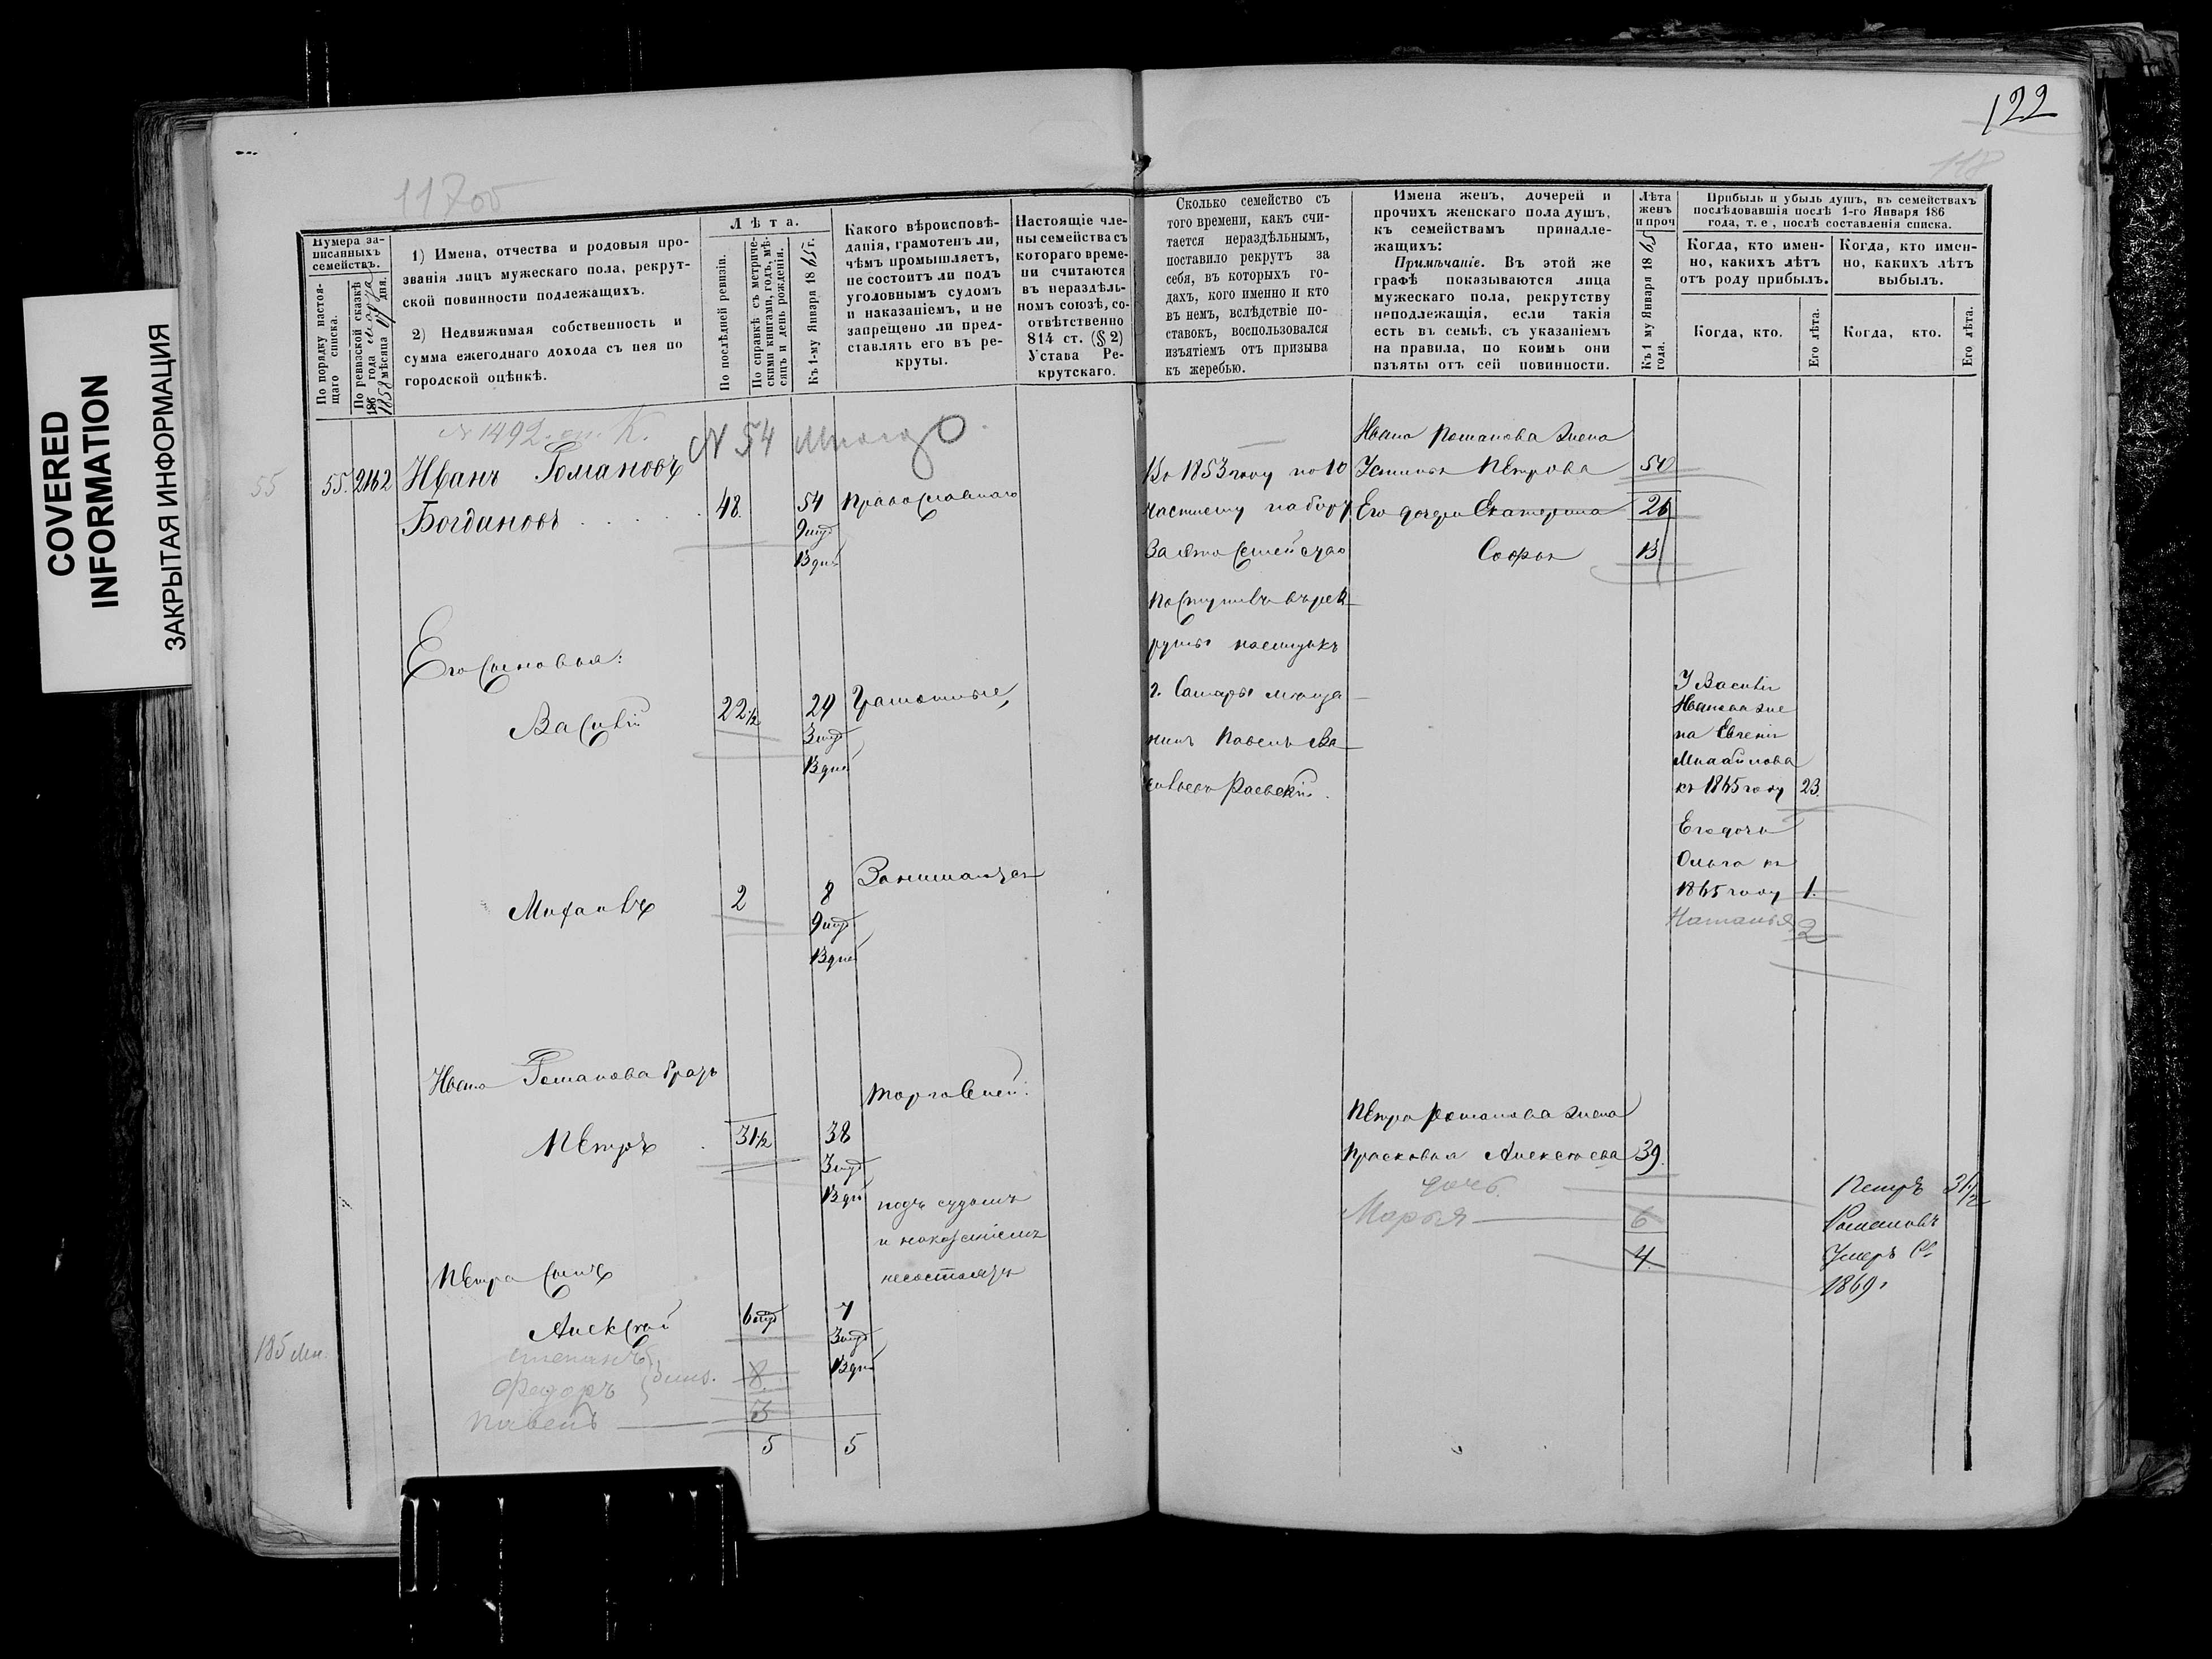 COVERED
INFORMATION
ЗАКРЫТАЯ ИНФОРМАЦИЯ
122
118
Нумера за-
писанныхъ
семействъ.
По порядку настоя-
щаго списка.
По ревизской сказкѣ
186 года
1858 мѣсяца дня.
1) Имена, отчества и родовыя про-
званія лицъ мужескаго пола, рекрут-
ской повинности подлежащихъ.
2) Недвижимая собственность и
сумма ежегоднаго дохода съ нея по
городской оцѣнкѣ.
Лѣта.
По послѣдней ревизіи.
По справкѣ съ метриче-
скими книгами, годъ, мѣ-
сяцъ и день рожденія.
Къ 1-му Января 1865 г.
Какого вѣроисповѣ-
данія, грамотенъ ли,
чѣмъ промышляетъ,
не состоитъ ли подъ
уголовнымъ судомъ
и наказаніемъ, и не
запрещено ли пред-
ставлять его въ ре-
круты.
Настоящіе чле-
ны семейства съ
котораго време-
ни считаются
въ нераздѣль-
номъ союзѣ, со-
отвѣтственно
814 ст. (§ 2)
Устава Ре-
крутскаго.
Сколько семейство съ
того времени, какъ счи-
тается нераздѣльнымъ,
поставило рекрутъ за
себя, въ которыхъ го-
дахъ, кого именно и кто
въ немъ, вслѣдствіе по-
ставокъ, воспользовался
изъятіемъ отъ призыва
къ жеребью.
Имена женъ, дочерей и
прочихъ женскаго пола душъ,
къ семействамъ принадле-
жащихъ:
Примѣчаніе. Въ этой же
графѣ показываются лица
мужескаго пола, рекрутству
неподлежащія, если такія
есть въ семьѣ, съ указаніемъ
на правила, по коимъ они
изъяты отъ сей повинности.
Лѣта
женъ
и проч
Къ 1 му Января 1865
года.
Прибыль и убыль душъ, въ семействахъ
послѣдовавшія послѣ 1-го Января 186
года, т. е , послѣ составленія списка.
Когда, кто имен-
но, какихъ лѣтъ
отъ роду прибылъ.
Когда, кто имен-
но, какихъ лѣтъ
выбылъ.
Когда, кто.
Его лѣта.
Когда, кто.
Его лѣта.
№ 1492
№ 54
55
55. 2162
Иванъ Романовъ
Богдановъ
48.
54
9 мѣс
13 дней
Православнаго
Его Сыновья:
Василій
22 1/2
29
3 мѣс
13 дней
Грамотные,
Михаилъ
2
8
9 мѣс
13 дней
Занимаются
Ивана Романова братъ
торговлей.
Петръ
31 1/2
38
3 мѣс
13 дней
подъ судомъ
и наказаніемъ
несостоятъ
Петра сынъ
Алексѣй
6 мѣс
7
3 мѣс
13 дней
185
Степанъ
Федоръ
8
Павелъ
3
5
5
Въ 1853 году по 10
частному набору
за это Семейство
поступилъ въ рек-
руты наемщикъ
г. Самары мѣща-
нинъ Павелъ Ва-
сильевъ Раевскій.
Ивана Романова жена
Устинья Петрова 50
Его дочери Екатерина 26
Софья 13
Петра Романова жена
Прасковья Алексѣева 39.
дочь
Марья 6
4
У Василія
Иванова же
на Евгенія
Михайлова
къ 1865 году 23.
Его дочь
Ольга къ
1865 году 1.
Наталья 2
Петръ 31 1/2
Романовъ
Умеръ
1869.